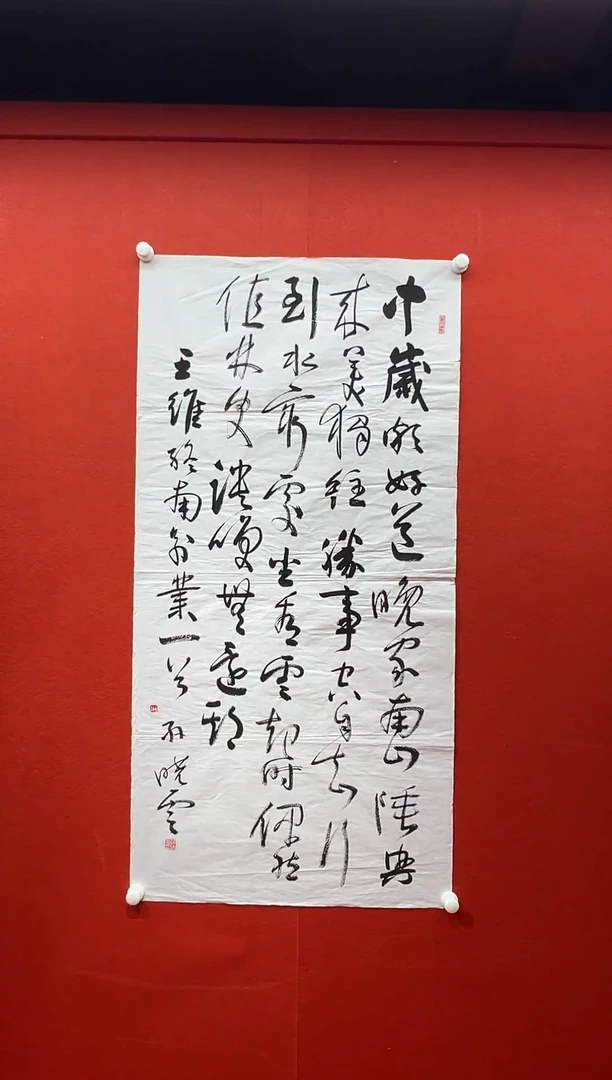 中歲頗好道晚家南山陲興
來每獨往勝事空自知行
到水窮處坐看雲起時偶然
值林叟談咲無還期
王維終南別業一首 孫曉雲